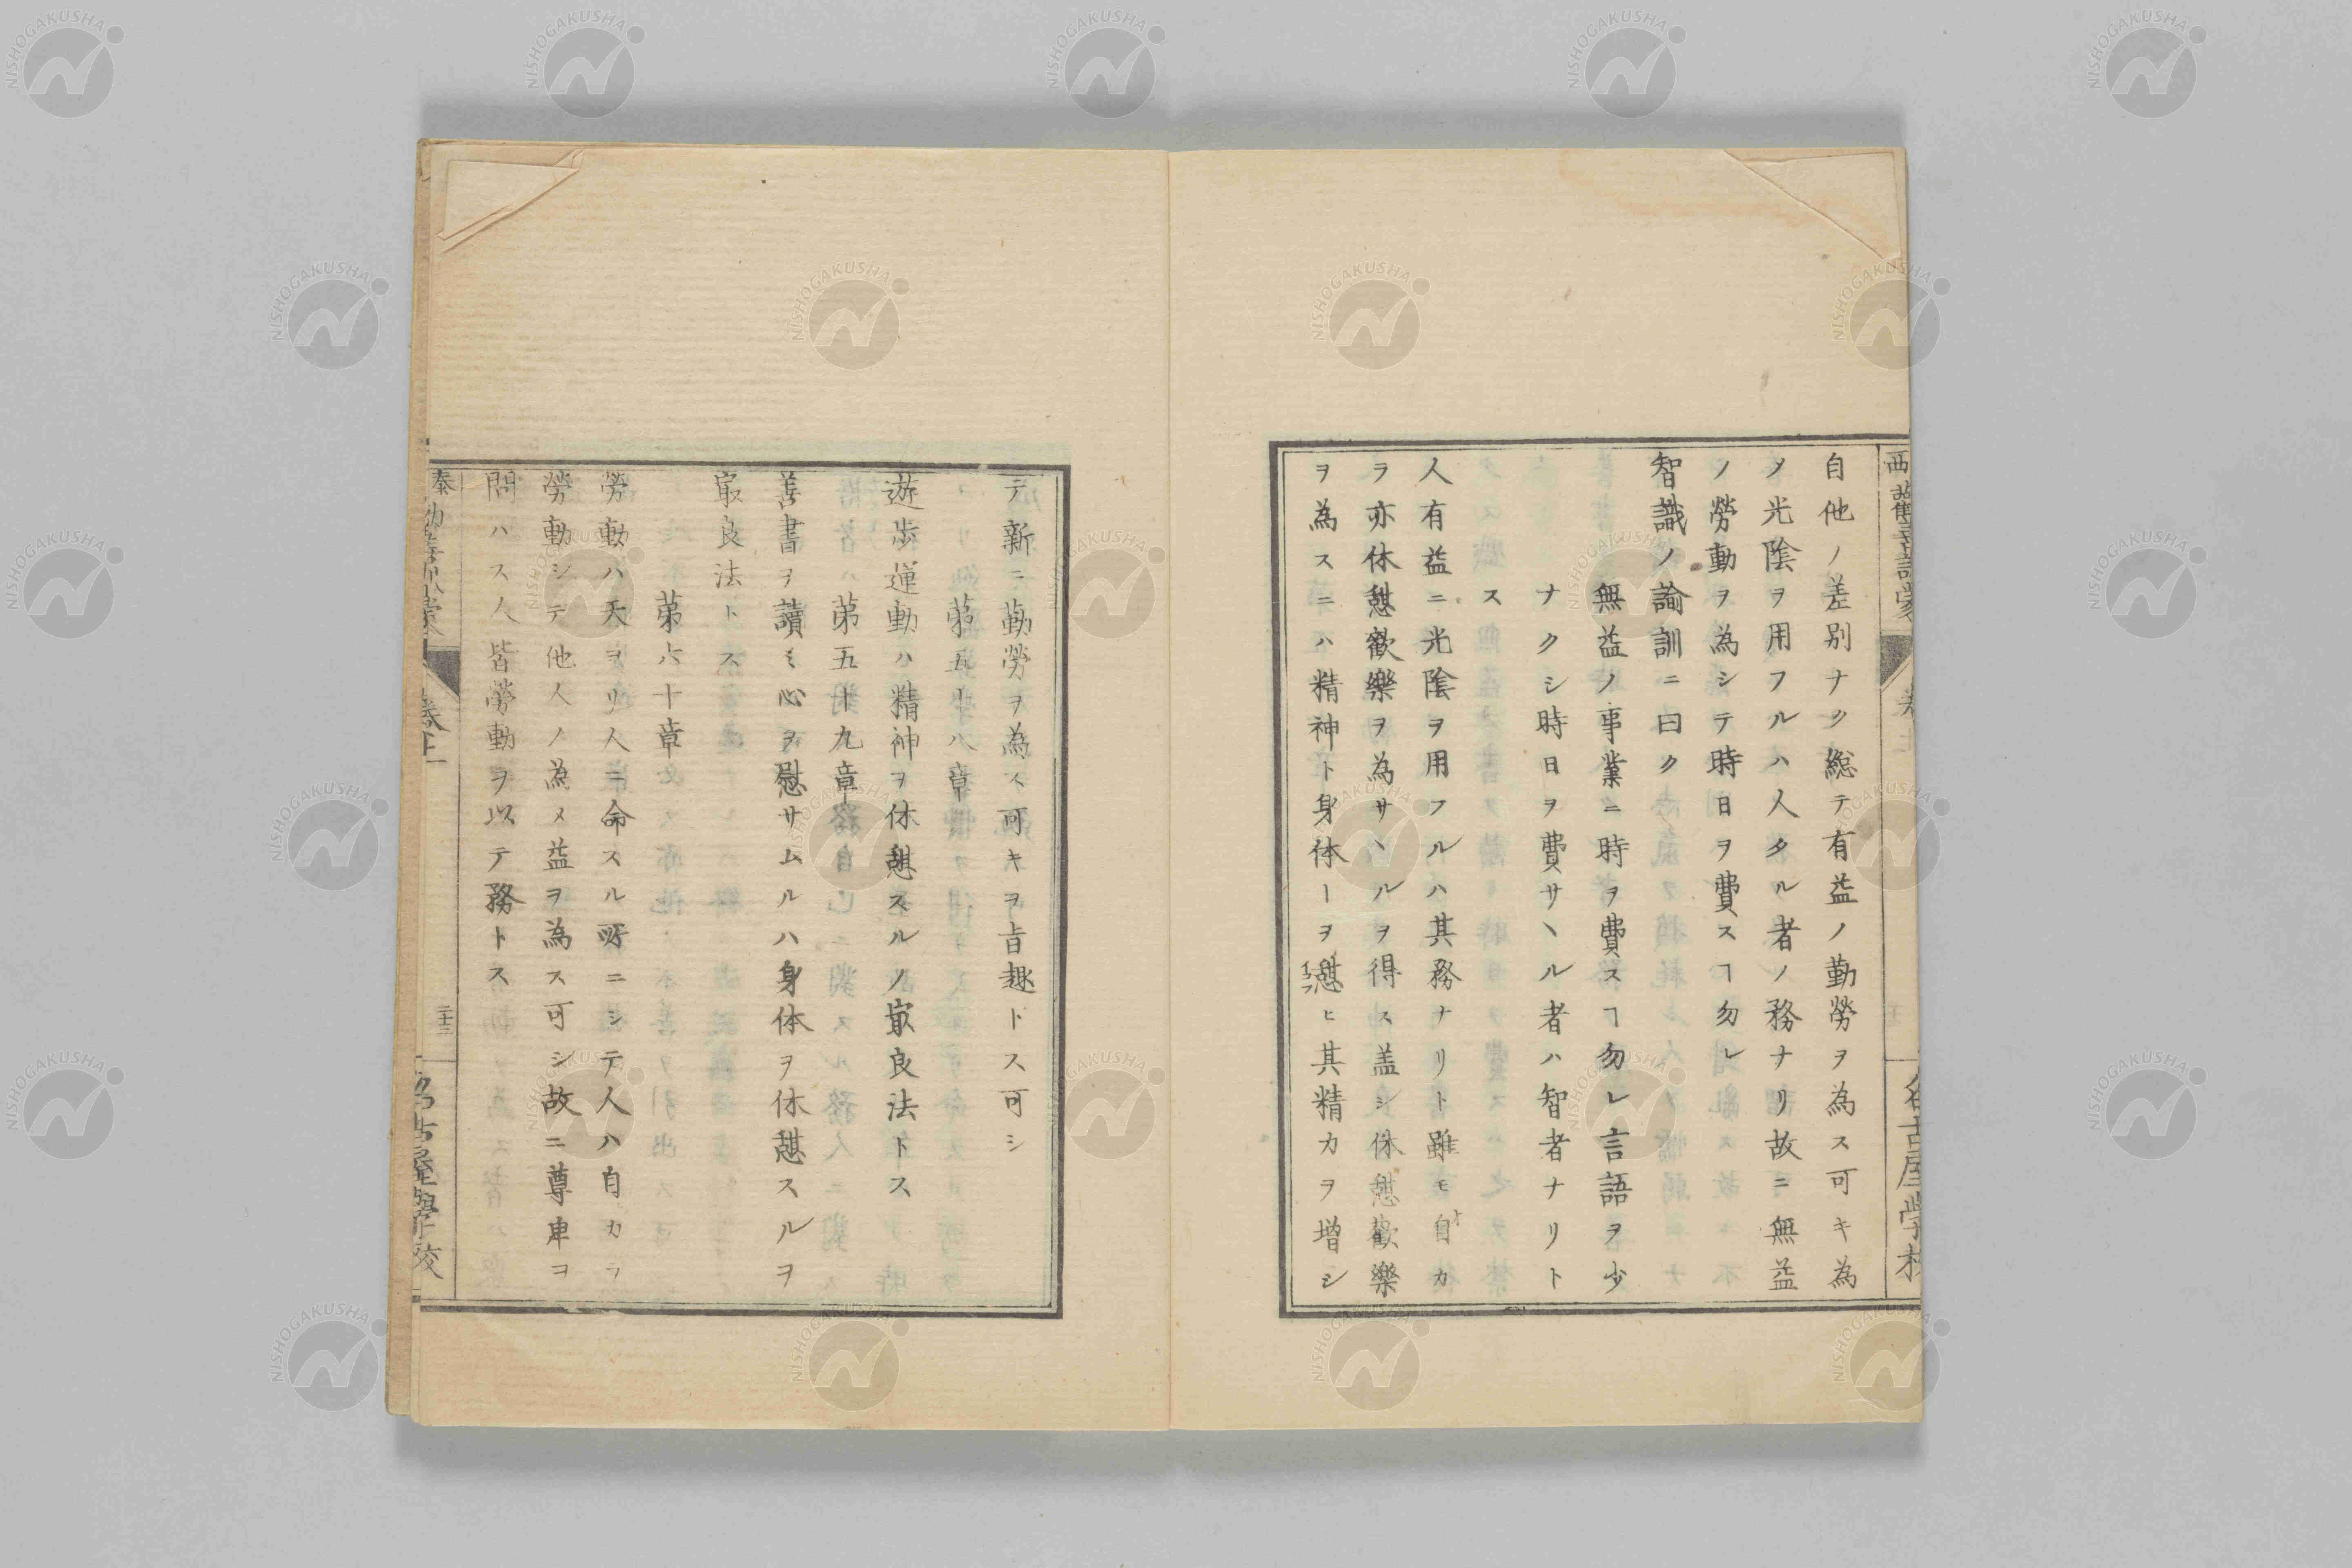 自他ノ差別ナク総テ有益ノ勤勞ヲ為ス可キ為
メ光陰ヲ用フルハ人タル者ノ務ナリ故ニ無益
ノ勞動ヲ為シテ時日ヲ費スヿ勿レ
智識ノ諭訓ニ曰ク
無益ノ事業ニ時ヲ費スヿ勿レ言語ヲ少
ナクシ時日ヲ費サヽル者ハ智者ナリト
ス
人有益ニ光陰ヲ用フルハ其務ナリト雖モ自カ
ラ亦休憩歡樂ヲ為サヽルヲ得ス盖シ休憩歡樂
ヲ為スニハ精神ト身体ーヲ憇ヒ其精力ヲ増シ
テ新ニ勤勞ヲ為ス可キヲ旨趣トス可シ
第五十八章
遊歩運動ハ精神ヲ休憩スルノ㝡良法トス
第五十九章
善書ヲ讀ミ心ヲ慰サムルハ身体ヲ休憩スルヲ
㝡良法トス
第六十章
勞動ハ天ヨリ人ニ命スル所ニシテ人ハ自カラ
勞動シテ他人ノ為メ益ヲ為ス可シ故ニ尊卑ヲ
問ハス人皆勞動ヲ以テ務トス
二十三
名古屋學校
NISHOGAKUSHA